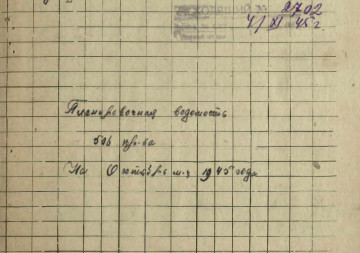 2702
4/XI 45 г
Планировочная ведомость
506 пр-ва
На Октябрь м-ц 1945 года